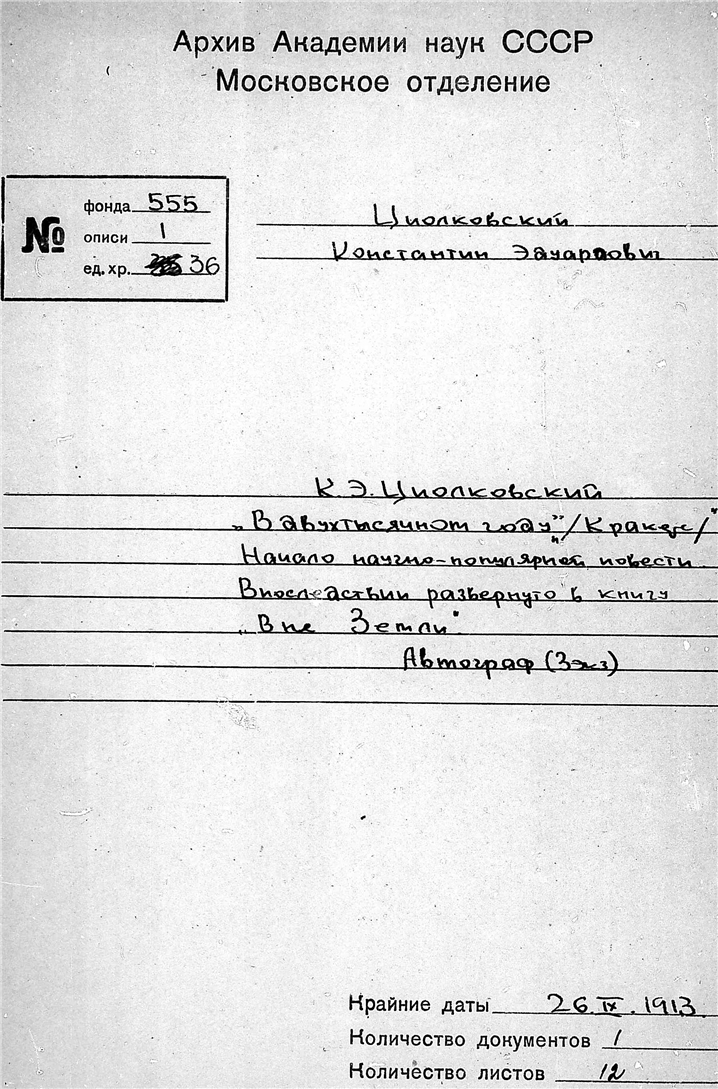 Архив Академии наук СССР
Московское отделение
№
фонда 555
описи 1
ед. хр. 36
Циолковский
Константин Эдуардович
К. Э. Циолковский
„В двухтысячном году"/Кракеце/"
Начало научно-популярной повести
Впоследствии развернуто в книгу
„Вне Земли".
Автограф (3 экз)
Крайние даты 26. IX. 1913
Количество документов 1
Количество листов 12